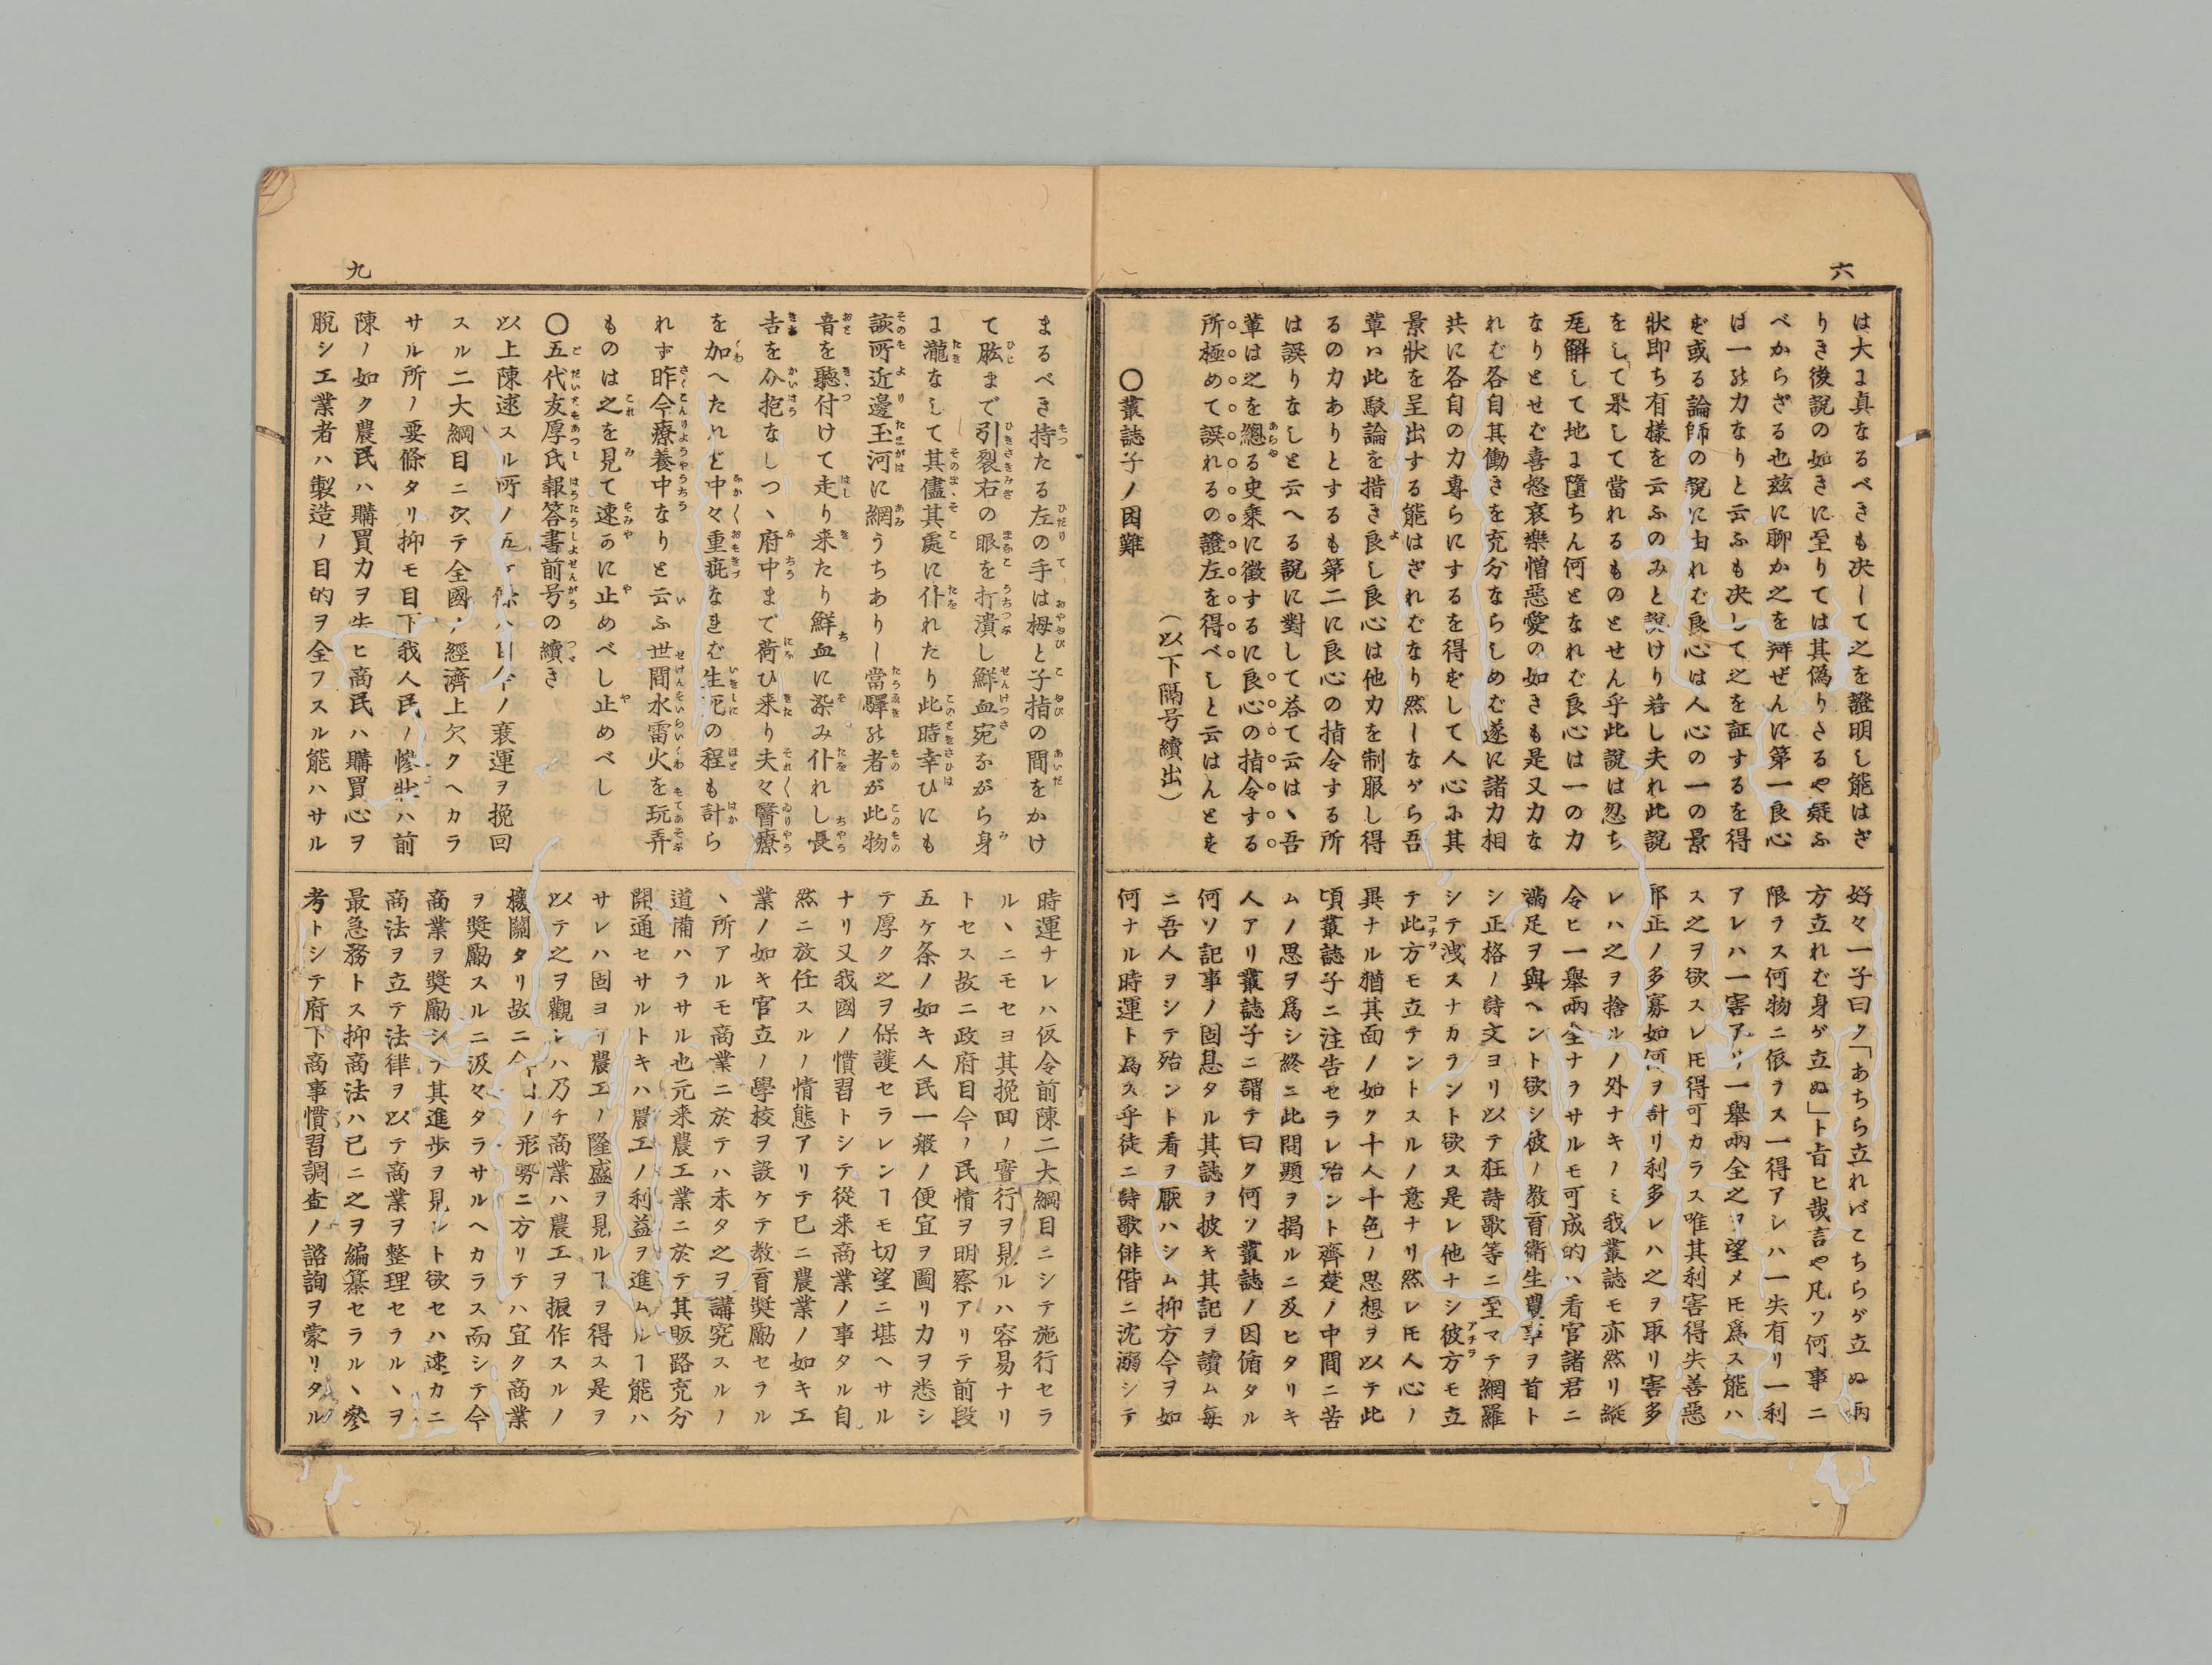 六
は大ま真なるべきも决して之を證明し能はざ
りき後説の如きに至りては其僞りさるや疑ふ
べからざる也茲に聊か之を辨ぜんに第一良心
は一の力なりと云ふも决して之を証するを得
ず或る論師の説に由れむ良心は人心の一の景
狀即ち有樣を云ふのみと説けり若し夫れ此説
をして果して當れるものとせん乎此説は忽ち
瓦解して地ま墮ちん何となれむ良心は一の力
なりとせむ喜怒哀樂憎惡愛の如きも是又力な
れむ各自其働きを充分ならしめむ遂に諸力相
共に各自の力專らにするを得ずして人心ふ其
景狀を呈出する能はざれむなり然しながら吾
輩ハ此駁論を措き良し良心は他力を制服し得
るの力ありとするも第二に良心の指令する所
は誤りなしと云へる説に對して荅て云はヽ吾
輩は之を總る史乘に徵するに良心の指令する
所極めて誤れるの證左を得べしと云はんとす
（以下隔号續出）
〇叢誌子ノ困難
好々一子曰ク「あちら立ればこちらが立ぬ兩
方立れむ身が立ぬ」ト旨ヒ哉言や凡ソ何事ニ
限ラス何物ニ依ラス一得アレハ一失有リ一利
アレハ一害アリ一舉兩全之ヲ望メ𪜈爲ス能ハ
ス之ヲ欲スレ𪜈得可カラス唯其利害得失善惡
邪正ノ多寡如何ヲ計リ利多レハ之ヲ取リ害多
レハ之ヲ捨ルノ外ナキノミ我叢誌モ亦然リ縱
令ヒ一舉兩全ナラサルモ可成的ハ看官諸君ニ
滿足ヲ與ヘント欲シ彼ノ教育衛生農事ヲ首ト
シ正格ノ詩文ヨリ以テ狂詩歌等ニ至マテ網羅
シテ洩スナカラント欲ス是レ他ナシ彼方モ立
テ此方モ立テントスルノ意ナリ然レ𪜈人心ノ
異ナル猶其面ノ如ク十人十色ノ思想ヲ以テ此
頃叢誌子ニ注告セラレ殆ント齊楚ノ中間ニ苦
ムノ思ヲ爲シ終ニ此問題ヲ揭ルニ及ヒタリキ
人アリ叢誌子ニ謂テ曰ク何ソ叢誌ノ因循タル
何ソ記事ノ固息タル其誌ヲ披キ其記ヲ讀ム每
ニ吾人ヲシテ殆ント看ヲ厭ハシム抑方今ヲ如
何ナル時運ト爲ス乎徒ニ詩歌俳偕ニ沈溺シテ
九
まるべき持たる左の手は栂と子指の間をかけ
て肱まで引裂右の眼を打潰し鮮血宛ながら身
ま瀧なして其儘其處に仆れたり此時幸ひにも
該所近邊玉河に網うちありし當驛の者が此物
音を聽付けて走り来たり鮮血に染み仆れし長
吉を介抱なしつヽ府中まで荷ひ来り夫々醫療
を加へたれど中々重疵なれむ生死の程も計ら
れず昨今療養中なりと云ふ世間水雷火を玩弄
ものは之を見て速かに止めべし止めべし
〇五代友厚氏報答書前号の續き
以上陳逑スル所ノ五ヶ條ハ目今ノ衰運ヲ挽回
スル二大綱目ニ次テ全國ノ經濟上欠クヘカラ
サル所ノ要條タリ抑モ目下我人民ノ慘狀ハ前
陳ノ如ク農民ハ購買力ヲ失ヒ商民ハ購買心ヲ
脫シ工業者ハ製造ノ目的ヲ全フスル能ハサル
時運ナレハ仮令前陳二大綱目ニシテ施行セラ
ルヽニモセヨ其挽回ノ實行ヲ見ルハ容易ナリ
トセス故ニ政府目今ノ民情ヲ明察アリテ前段
五ケ条ノ如キ人民一般ノ便宜ヲ圖リカヲ悉シ
テ厚ク之ヲ保護セラレンヿモ切望ニ堪ヘサル
ナリ又我國ノ慣習トシテ從来商業ノ事タル自
然ニ放任スルノ情態アリテ已ニ農業ノ如キ工
業ノ如キ官立ノ學校ヲ設ケテ教育奬勵セラル
ヽ所アルモ商業ニ於テハ未タ之ヲ講究スルノ
道備ハラサル也元来農工業ニ於テ其販路充分
開通セサルトキハ農工ノ利益ヲ進ムルヿ能ハ
サレハ固ヨリ農工ノ隆盛ヲ見ルヿヲ得ス是ヲ
以テ之ヲ觀レハ乃チ商業ハ農工ヲ振作スルノ
機關タリ故ニ今日ノ形勢ニ方リテハ宜ク商業
ヲ奬勵スルニ汲々タラサルヘカラス而シテ今
商業ヲ奬勵シテ其進歩ヲ見ント欲セハ速カニ
商法ヲ立テ法律ヲ以テ商業ヲ整理セラルヽヲ
最急務トス抑商法ハ已ニ之ヲ編纂セラルヽ參
考トシテ府下商事慣習調査ノ諮詢ヲ蒙リタル